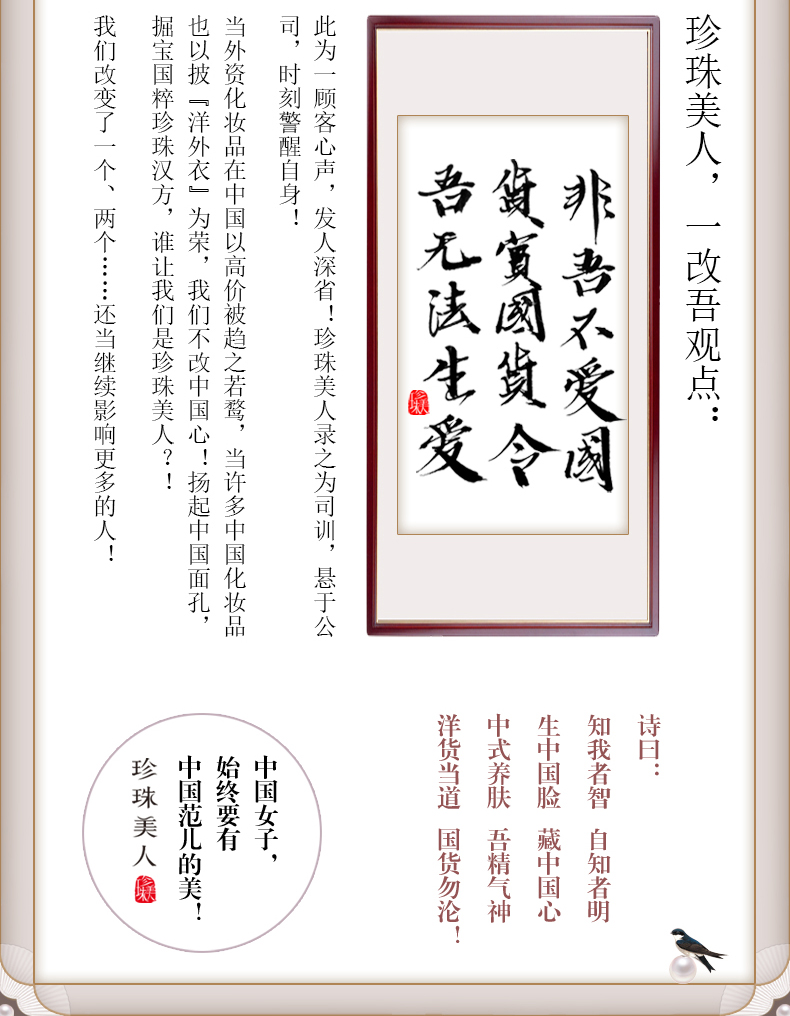 珍珠美人，一改吾观点：
非吾不爱國
貨實國货令
吾无法生爱
此为一顾客心声，发人深省！珍珠美人录之为司训，悬于公
司，时刻警醒自身！
当外资化妆品在中国以高价被趋之若鹜，当许多中国化妆品
也以披『洋外衣』为荣，我们不改中国心！扬起中国面孔，
掘宝国粹珍珠汉方，谁让我们是珍珠美人？！
我们改变了一个、两个……还当继续影响更多的人！
诗曰：
知我者智 自知者明
生中国脸 藏中国心
中式养肤 吾精气神
洋货当道 国货勿沦！
中国女子，
始终要有
中国范儿的美！
珍珠美人